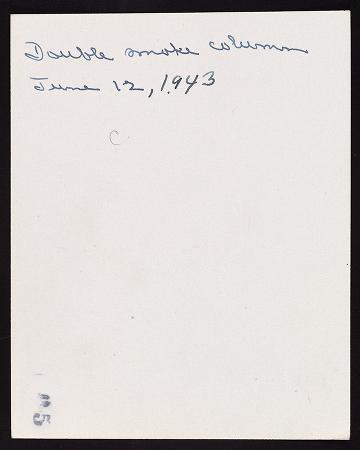 Double smoke column
June 12, 1943
C